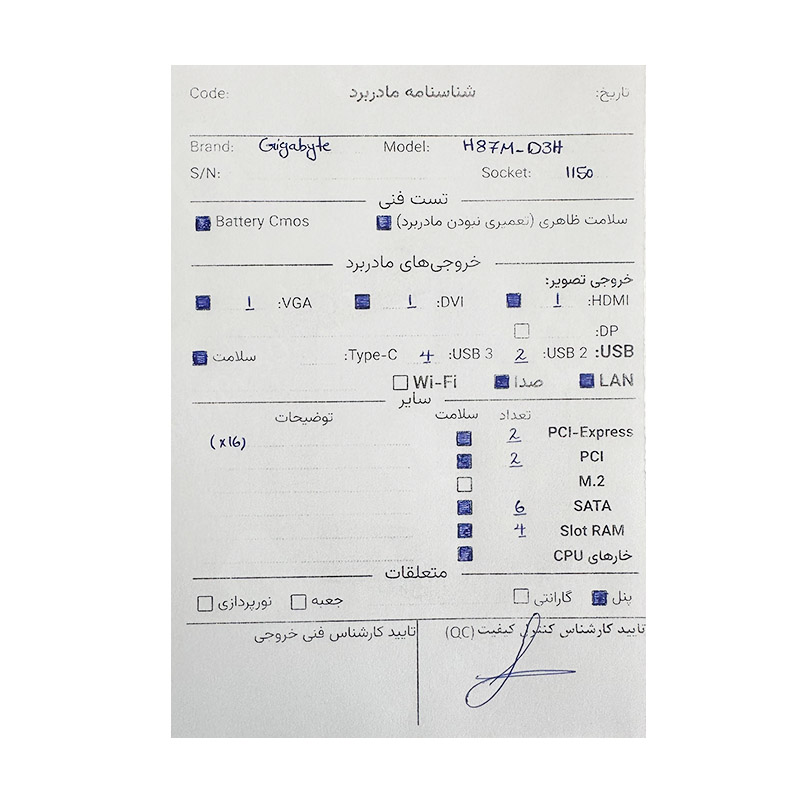 تاریخ: شناسنامه مادربرد Code:
Brand: Gigabyte Model: H87M-D3H
S/N: Socket: 1150
تست فنی
سلامت ظاهری (تعمیری نبودن مادربرد) Battery Cmos
خروجی‌های مادربرد
خروجی تصویر:
HDMI: 1 DVI: 1 VGA: 1
DP:
USB: USB 2: 2 USB 3: 4 Type-C: سلامت
LAN صدا Wi-Fi
سایر
تعداد سلامت توضیحات
PCI-Express 2 (x16)
PCI 2
M.2
SATA 6
Slot RAM 4
خارهای CPU
متعلقات
پنل گارانتی جعبه نورپردازی
تایید کارشناس کنترل کیفیت (QC) تایید کارشناس فنی خروجی